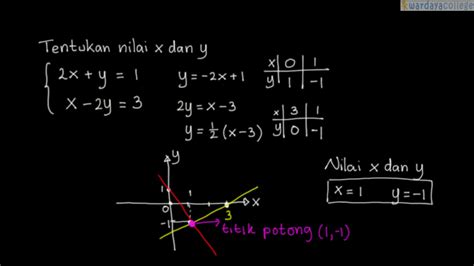 wardayacollege
Tentukan nilai x dan y
2x + y = 1
x - 2y = 3
y = -2x + 1
x 0 1
y 1 -1
2y = x - 3
y = 1/2 (x - 3)
x 3 1
y 0 -1
y
1
1
0
3
x
-1
titik potong (1, -1)
Nilai x dan y
x = 1 y = -1